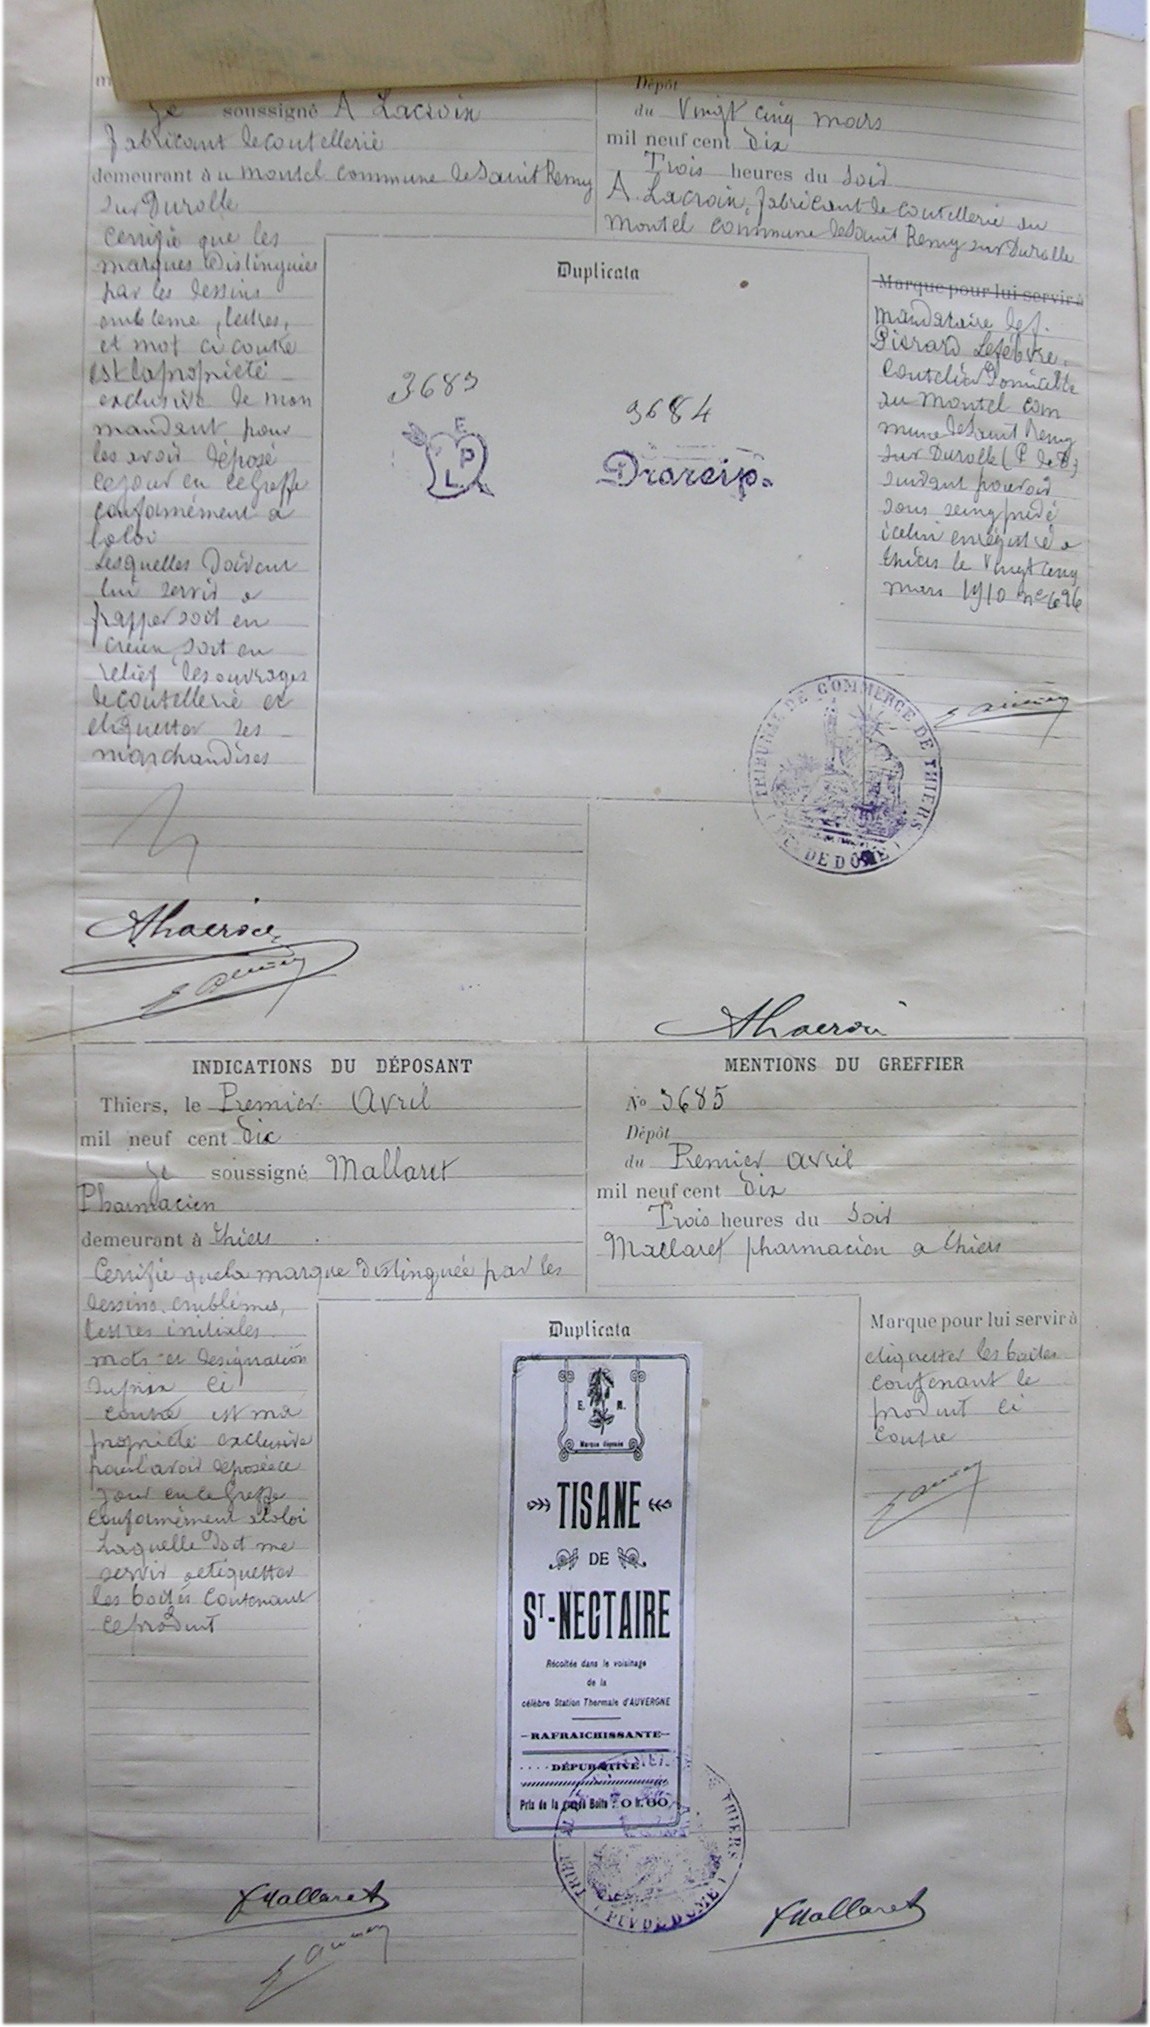 Je soussigné A Lacroix
fabricant de coutellerie
demeurant à u montel commune de Saint Remy
sur Durolle
Certifie que les
marques distinguées
par les dessins
embleme, lettres,
et mot ci contre
est la propriété
exclusive de mon
mandant pour
les avoir déposé
ce jour en ce Greffe
conformément a
la loi
Lesquelles doivent
lui servir a
frapper soit en
creux, soit en
relief les ouvrages
de coutellerie et
etiquetter ses
marchandises
ALacroix
Dépôt
du Vingt cinq mars
mil neuf cent dix
Trois heures du soir
A. Lacroix, fabricant de coutellerie au
Montel commune de Saint Remy sur Durolle
Duplicata
3683
E
P
L
3684
Marque pour lui servir à
mandataire de f.
Pierard Lefebvre,
Coutelier domicilié
au Montel com
mune de Saint Remy
sur Durolle (P de D)
suivant pouvoir
sous seing privé
icelui enregistré a
thiers le Vingt cinq
mars 1910 n° 696
TRIBUNAL DE COMMERCE DE THIERS
( PUY DE DÔME )
ALacroix
INDICATIONS DU DÉPOSANT
Thiers, le Premier Avril
mil neuf cent dix
je soussigné Mallaret
Pharmacien
demeurant à thiers
Certifie que la marque distinguée par les
dessins, emblèmes,
lettres initiales
mots et designation
du prix ci
contre est ma
propriété exclusive
pour l'avoir déposée ce
jour en ce Greffe
conformément a la loi
Laquelle doit me
servir a etiquetter
les boites contenant
ce produit
Mallaret
MENTIONS DU GREFFIER
N° 3685
Dépôt
du Premier avril
mil neuf cent dix
Trois heures du soir
Mallaret pharmacien a thiers
Duplicata
E. M.
Marque déposée
TISANE
DE
ST-NECTAIRE
Récoltée dans le voisinage
de la
célèbre Station Thermale d'AUVERGNE
-RAFRAICHISSANTE-
DÉPURATIVE
Prix de la grande Boite : 0 fr. 60
Marque pour lui servir à
etiquetter les boites
contenant le
produit ci
contre
THIERS
( PUY DE DÔME )
Mallaret